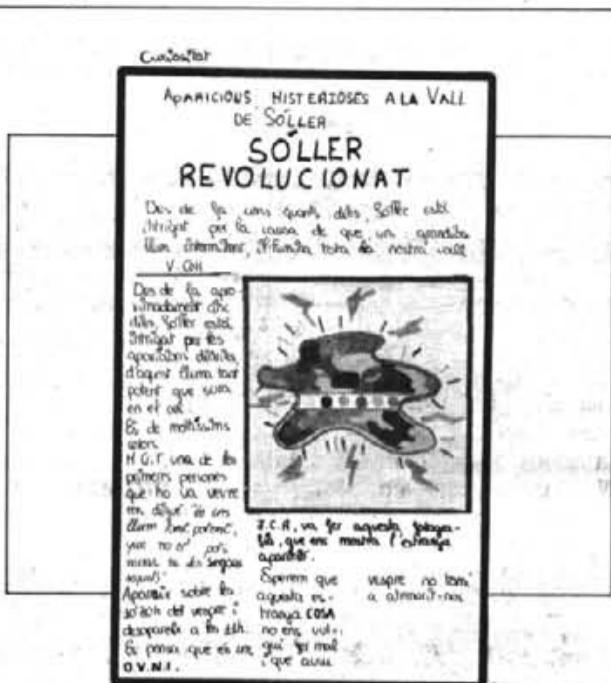 Curiositat
APARICIONS MISTERIOSES A LA VALL
DE SÓLLER
SÓLLER
REVOLUCIONAT
Des de fa uns quants dies, Sóller està
intrigat per la causa de que un grandiós
llum intermitent, il·lumina tota la nostra vall
Des de fa apro
ximadament cinc
dies, Sóller està
intrigat per les
aparicions
d'aquest llum tant
potent que surt
en el cel.
Es de moltíssims
colors
M.G.T. una de les
primeres persones
que ho va veure
ens digué: és un
llum tant potent,
que no el pots
mirar
Apareix sobre les
del vespre i
desapareix a les 11h.
Es pensa que és un
O.V.N.I.
J.C.R, va fer aquesta fotogra-
fia, que ens mostra l'estranya
aparició.
Esperem que
aquesta es-
tranya COSA
no ens vul-
gui fer mal
i que avui
vespre no torni
a alarmar-nos